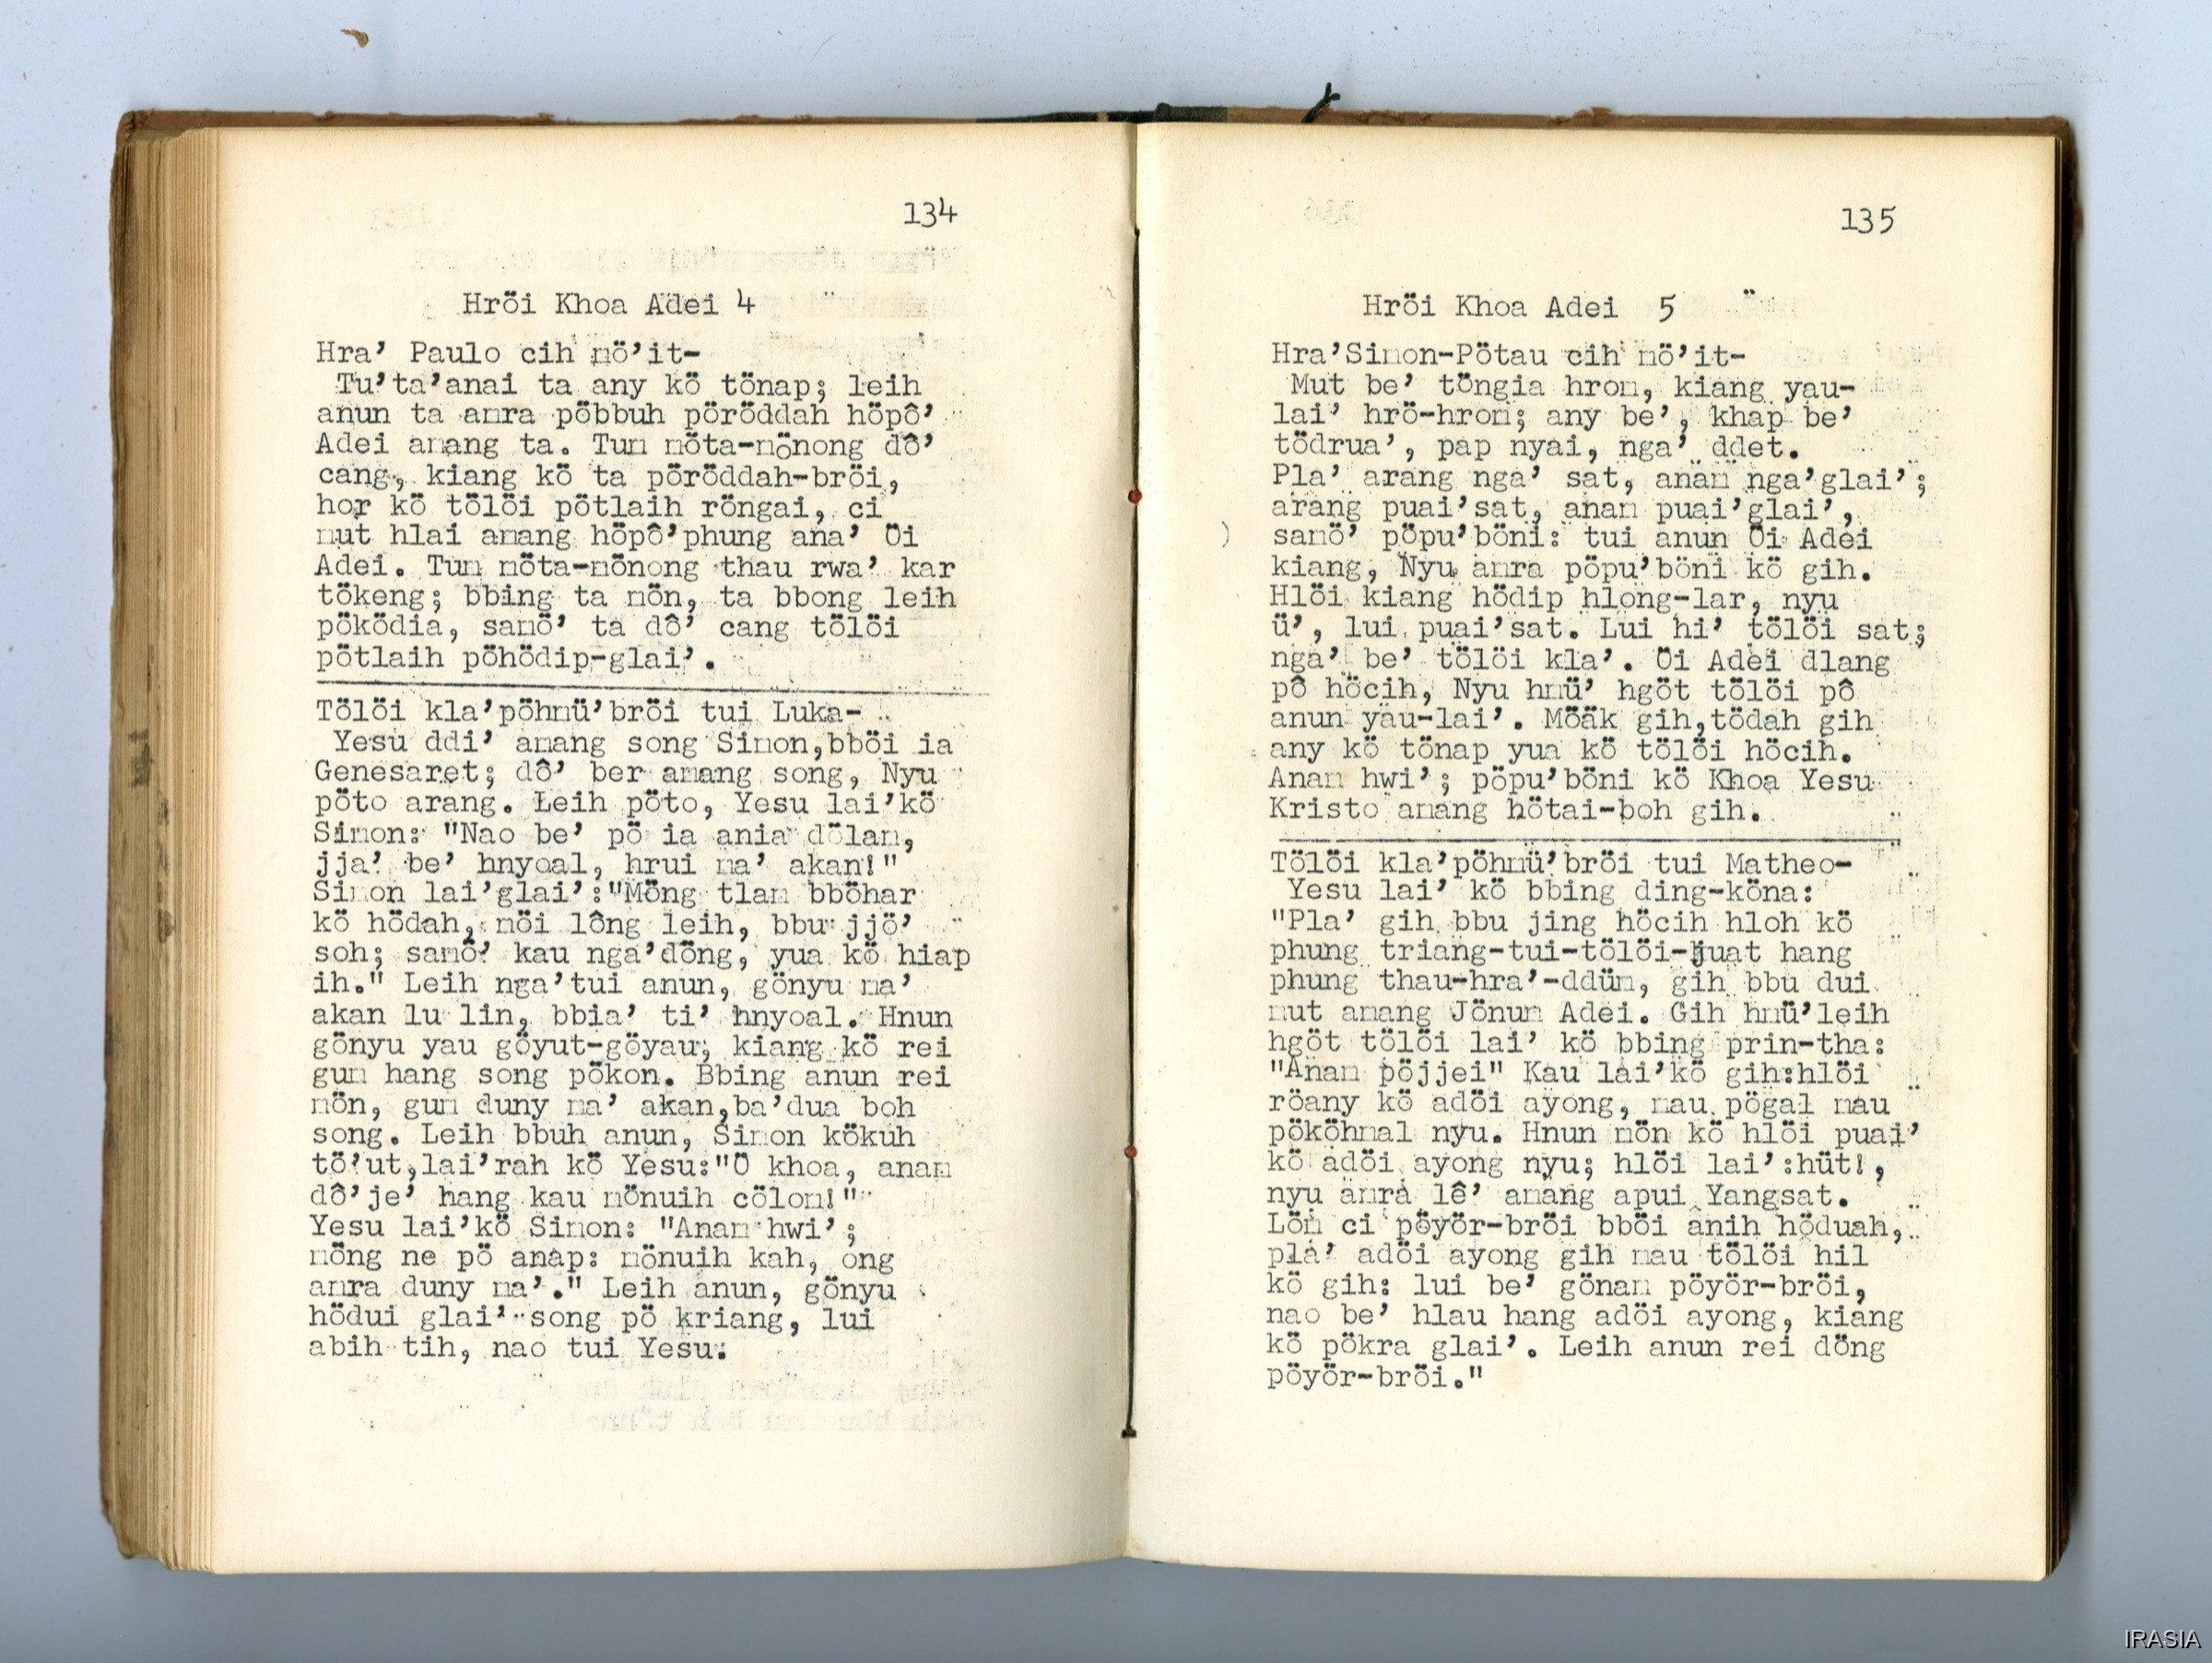 134
Hröi Khoa Adei 4
Hra' Paulo cih mö'it-
Tu'ta'anai ta any kö tönap; leih
anun ta amra pöbbuh pöröddah höpô'
Adei amang ta. Tum möta-mönong dô'
cang, kiang kö ta pöröddah-bröi,
hor kö tölöi pötlaih röngai, ci
mut hlai amang höpô'phung ana' Öi
Adei. Tum möta-mönong thau rwa' kar
tökeng; bbing ta mön, ta bbong leih
pöködia, samö' ta dô' cang tölöi
pötlaih pöhödip-glai'.
Tölöi kla'pöhmü'bröi tui Luka-
Yesu ddi' amang song Simon,bböi ia
Genesaret; dô' ber amang song, Nyu
pöto arang. Leih pöto, Yesu lai'kö
Simon: "Nao be' pö ia ania dölam,
jja' be' hnyoal, hrui ma' akan!"
Simon lai'glai':"Möng tlam bböhar
kö hödah, möi lông leih, bbu jjö'
soh; samö' kau nga'döng, yua kö hiap
ih." Leih nga'tui anun, gönyu ma'
akan lu lin, bbia' ti' hnyoal. Hnun
gönyu yau göyut-göyau; kiang kö rei
gum hang song pökon. Bbing anun rei
mön, gum duny ma' akan,ba'dua boh
song. Leih bbuh anun, Simon kökuh
tö'ut,lai'rah kö Yesu:"Ö khoa, anam
dô'je' hang kau mönuih cölom!"
Yesu lai'kö Simon: "Anam hwi';
möng ne pö anap: mönuih kah, ong
amra duny ma'." Leih anun, gönyu
hödui glai' song pö kriang, lui
abih tih, nao tui Yesu.
135
Hröi Khoa Adei 5
Hra'Simon-Pötau cih mö'it-
Mut be' töngia hrom, kiang yau-
lai' hrö-hrom; any be', khap be'
tödrua', pap nyai, nga' ddet.
Pla' arang nga' sat, anam nga'glai';
arang puai'sat, anam puai'glai',
samö' pöpu'böni: tui anun Öi Adei
kiang, Nyu amra pöpu'böni kö gih.
Hlöi kiang hödip hlong-lar, nyu
ü', lui puai'sat. Lui hi' tölöi sat;
nga' be' tölöi kla'. Öi Adei dlang
pô höcih, Nyu hmü' hgöt tölöi pô
anun yäu-lai'. Möäk gih,tödah gih
any kö tönap yua kö tölöi höcih.
Anam hwi'; pöpu'böni kö Khoa Yesu
Kristo amang hötai-boh gih.
Tölöi kla'pöhmü'bröi tui Matheo-
Yesu lai' kö bbing ding-köna:
"Pla' gih bbu jing höcih hloh kö
phung triang-tui-tölöi-juat hang
phung thau-hra'-ddüm, gih bbu dui
mut amang Jömum Adei. Gih hmü'leih
hgöt tölöi lai' kö bbing prin-tha:
"Anam pöjjei" Kau lai'kö gih:hlöi
röany kö adöi ayong, mau pögal mau
pököhmal nyu. Hnun mön kö hlöi puai'
kö adöi ayong nyu; hlöi lai':hüt!,
nyu amra lê' amang apui Yangsat.
Löm ci pöyör-bröi bböi ânih höduah,
pla' adöi ayong gih mau tölöi hil
kö gih: lui be' gönam pöyör-bröi,
nao be' hlau hang adöi ayong, kiang
kö pökra glai'. Leih anun rei döng
pöyör-bröi."
IRASIA